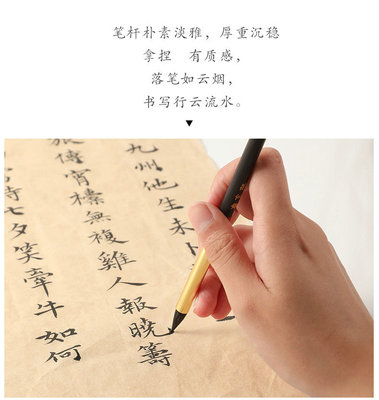 笔杆朴素淡雅，厚重沉稳
拿捏 有质感，
落笔如云烟，
书写行云流水。
九州他生未卜
旅傳宵無複雞人報曉籌
時七夕笑牽牛如何